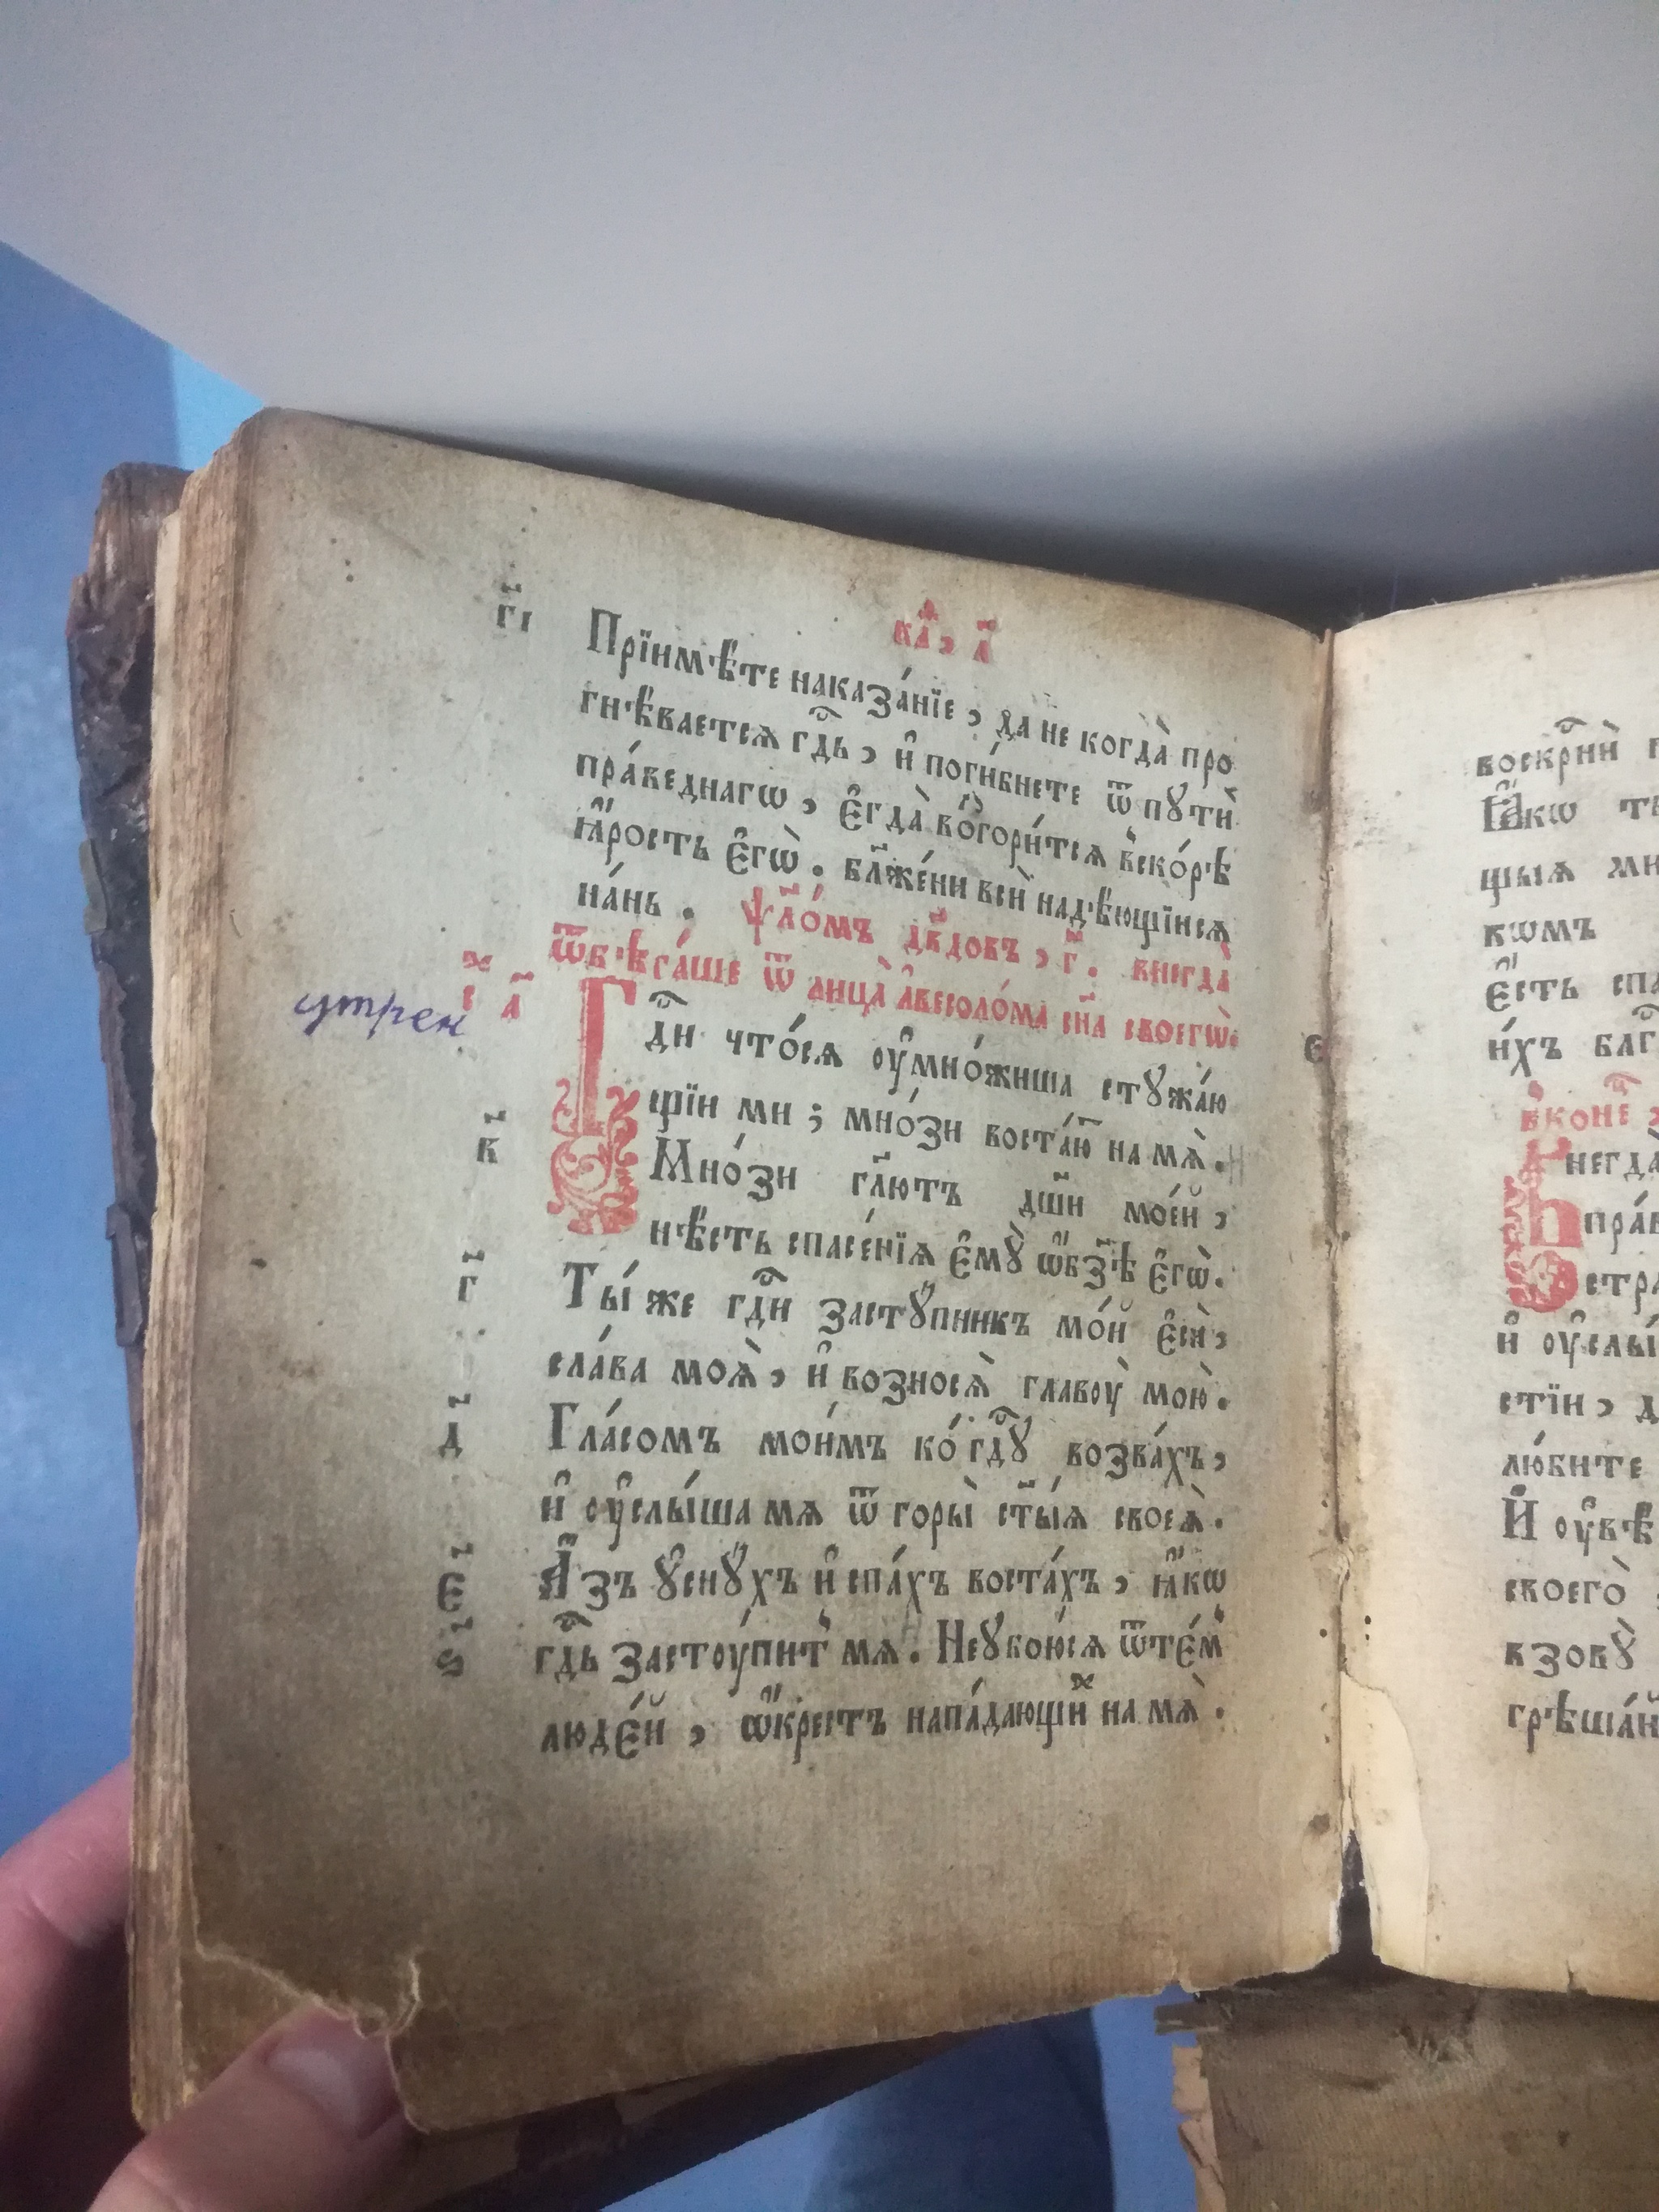 ка҃, а҃
г҃і Прїимѣ́те наказа́нїе, да не когда̀ про
гнѣ́вается гдⷭ҇ь, и҆ поги́бнете ѿ пꙋтѝ
пра́веднагѡ, є҆гда̀ во́згори́тся в̾ско́рѣ
ꙗ҆́рость є҆гѡ̀. бл҃же́ни всѝ надѣ́ющїися
на́нь. ѱл҃о́мъ дв҃довъ, г҃. внегда̀
ѿбѣга́ше ѿ лица̀ а҆весоло́ма сн҃а своегѡ̀.
ѕⷯ а҃
утрен
Гдⷭ҇и что́ся оу҆мно́жиша стꙋжа́ю
щїи ми; мно́зи воста́ютъ на мѧ̀.
в҃ Мно́зи гл҃ютъ дш҃и мое́й,
нѣ́сть спасе́нїѧ є҆мꙋ̀ ѡ҆бз҃ѣ є҆гѡ̀.
г҃ Ты́ же гдⷭ҇и застꙋ́пникъ мо́й є҆сѝ,
сла́ва моѧ̀, и҆ вознося̀ главоу̀ мою̀.
д҃ Гла́сомъ мои́мъ ко́ гдⷭ҇ꙋ возва́хъ,
и҆ оу҆слы́ша мѧ ѿ горы̀ ст҃ы́ѧ своеѧ̀.
є҃ А҆́зъ ꙋ҆снꙋ́хъ и҆ спа́хъ воста́хъ, ꙗ҆́кѡ
ѕ҃ гдⷭ҇ь застоу́пит̾ мѧ. Неꙋбою́ся ѿте́м̾
люде́й, ѡ҆́крестъ напа́дающиⷯ на мѧ̀.
воскрⷭ҇нѝ
Ꙗ҆́кѡ
щыѧ
кѡмъ
Є҆́сть
и́хъ
в̾конеⷰ҇,
негда̀
и҆ оу҆слы́
стїи,
лю́бите
И҆ оу҆вѣ
своего̀
взовꙋ̀